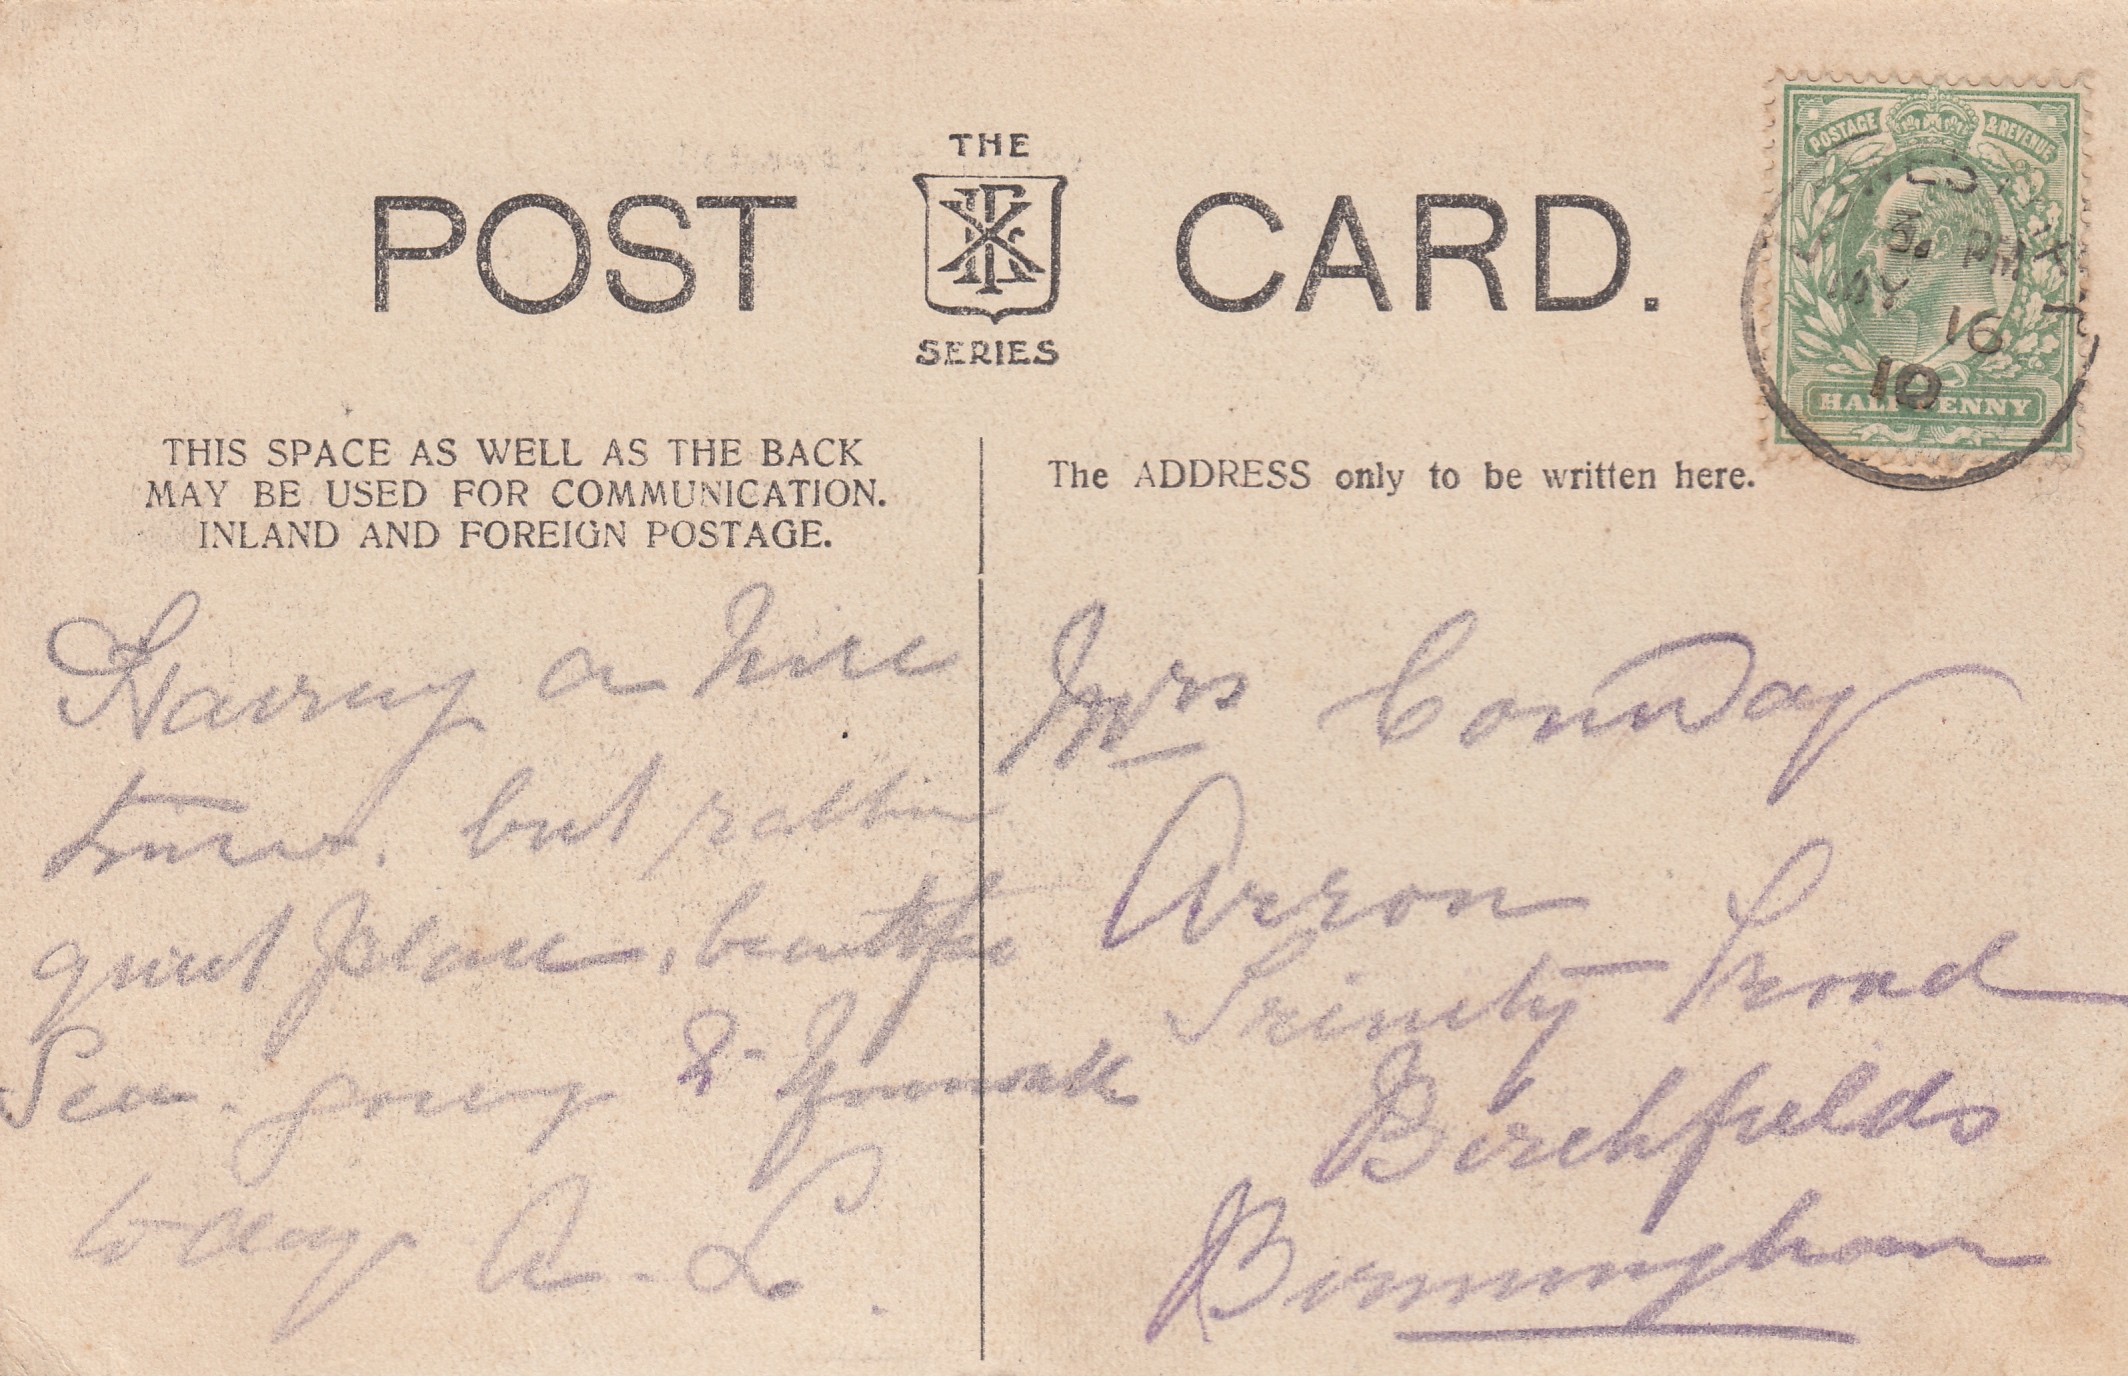 THE
POST CARD.
SERIES
POSTAGE & REVENUE
LOWESTOFT
3. PM
MY 16
10
HALFPENNY
THIS SPACE AS WELL AS THE BACK
MAY BE USED FOR COMMUNICATION.
INLAND AND FOREIGN POSTAGE.
The ADDRESS only to be written here.
Having a nice
time. but rather
quiet place, beautiful
Sea. going to Yarmouth
to day. A. L.
Mrs Conway
Arron
Trinity Road
Birchfields
Birmingham